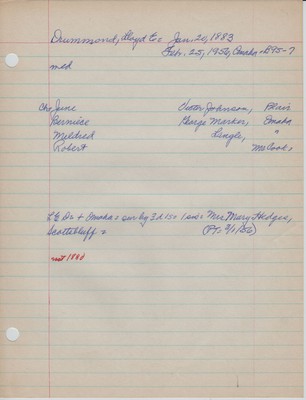 Drummond, Lloyd E. = Jan. 20, 1883
Feb. 25, 1956, Omaha = B95-7
md
Ch: June Victor Johnson, Blair
Bernice George Marker, Omaha
Mildred Lingle, "
Robert McCook =
L E Dr + Omaha = sur by 3 d 1 s = 1 sis = Mrs Mary Hedges,
Scottsbluff = (Pt= 3/1/56)
not 1880